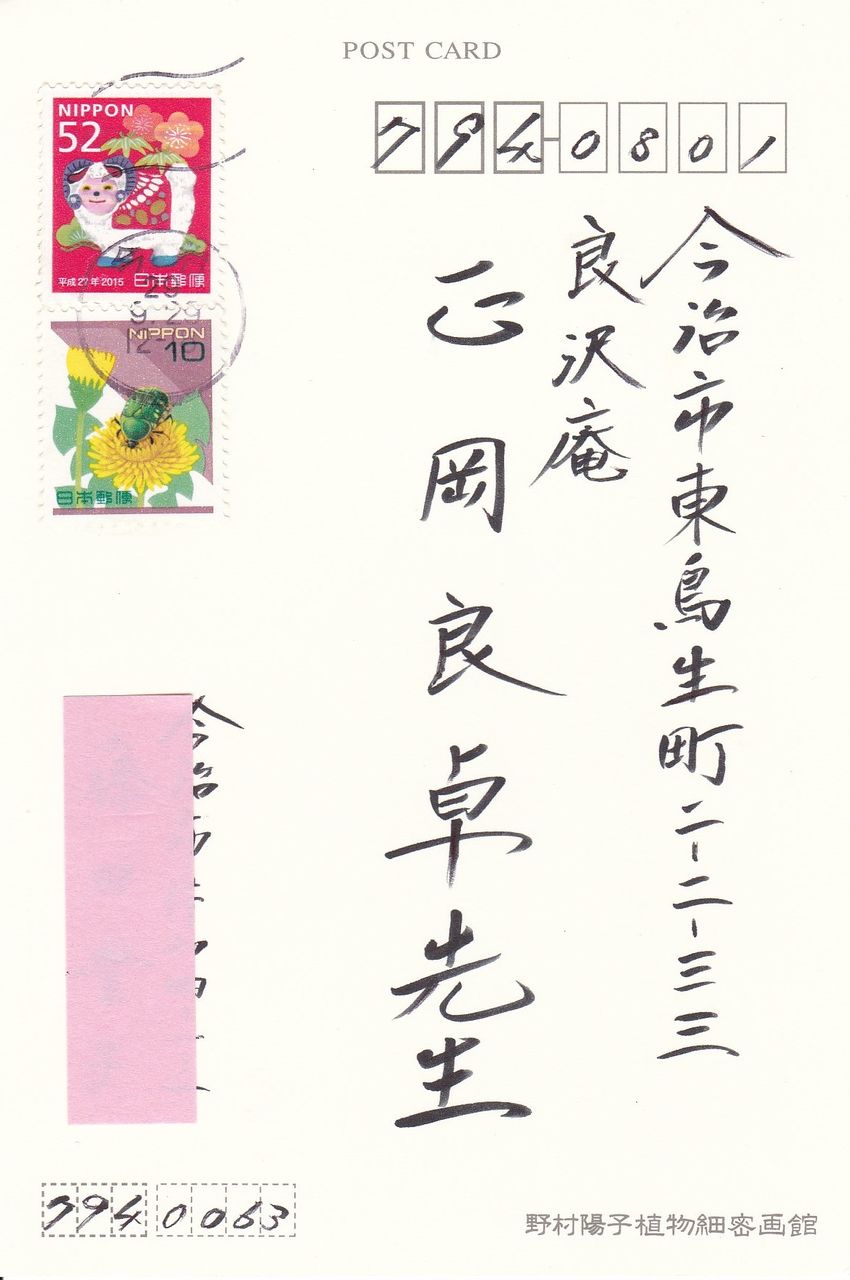 POST CARD
794-0801
今治市東鳥生町二-二-三三
良沢庵
正岡良卓先生
NIPPON
52
平成27年2015 日本郵便
NIPPON
10
日本郵便
9.29
今治市
794 0063
野村陽子植物細密画館